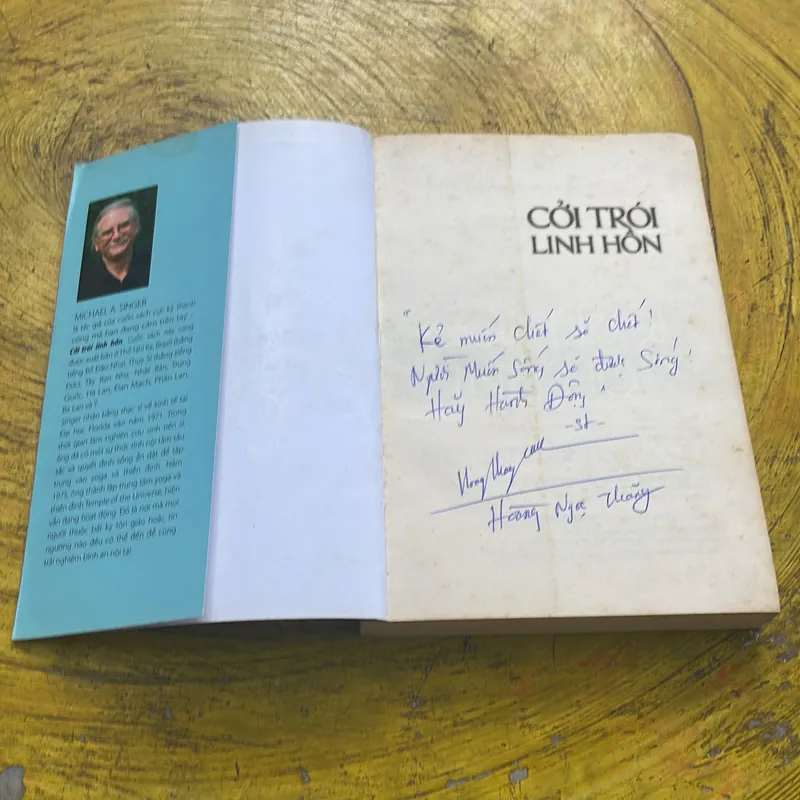 MICHAEL A. SINGER
là tác giả của cuốn sách cực kỳ thành
công mà bạn đang cầm trên tay -
Cởi trói linh hồn. Cuốn sách này cũng
được xuất bản ở Thổ Nhĩ Kỳ, Brazil (bằng
tiếng Bồ Đào Nha), Thụy Sĩ (bằng tiếng
Đức), Tây Ban Nha, Nhật Bản, Trung
Quốc, Hà Lan, Đan Mạch, Phần Lan,
Ba Lan và Ý.
Singer nhận bằng thạc sĩ về kinh tế tại
Đại học Florida vào năm 1971. Trong
thời gian làm nghiên cứu sinh tiến sĩ,
ông đã có một sự thức tỉnh nội tâm sâu
sắc và quyết định sống ẩn dật để tập
trung vào yoga và thiền định. Năm
1975, ông thành lập trung tâm yoga và
thiền định Temple of the Universe, hiện
vẫn đang hoạt động. Đó là nơi mà mọi
người thuộc bất kỳ tôn giáo hoặc tín
ngưỡng nào đều có thể đến để cùng
trải nghiệm bình an nội tại.
CỞI TRÓI
LINH HỒN
"Kẻ muốn chết sẽ chết!
Người Muốn Sống sẽ được Sống!
Hãy Hành Động"
-st-
Hoàng Ngọc Thắng